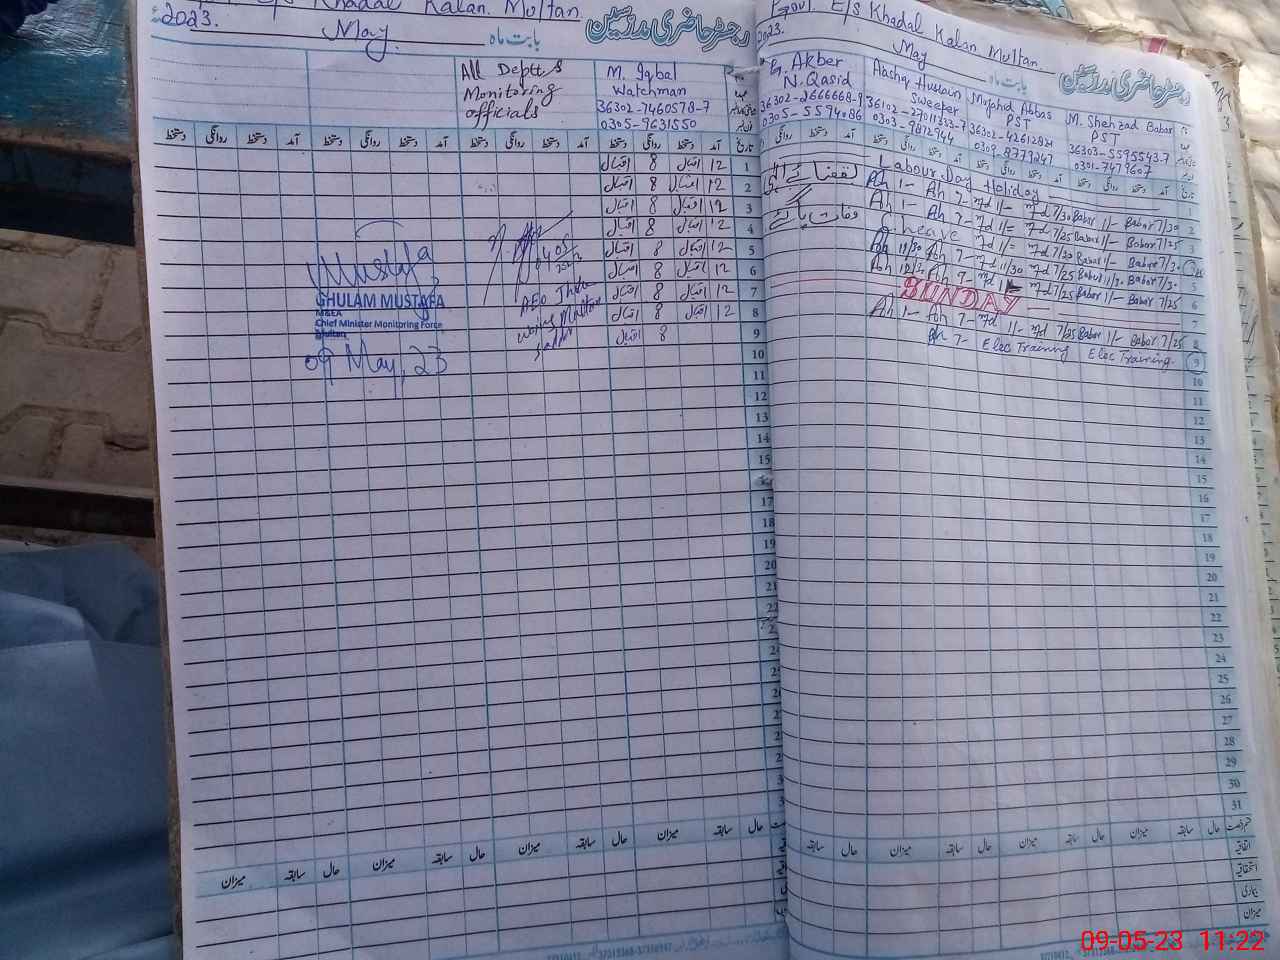 E/S Khadal Kalan. Multan.
2023.
May.
بابت ماہ
رجسٹر حاضری مدرسین
All Deptts
Monitoring
officials
M. Iqbal
Watchman
36302-7460578-7
0305-9631550
دستخط روانگی دستخط آمد دستخط روانگی دستخط آمد دستخط روانگی دستخط آمد دستخط روانگی دستخط آمد تاریخ
اقبال 8 اقبال 12 1
اقبال 8 اقبال 12 2
اقبال 8 اقبال 12 3
اقبال 8 اقبال 12 4
اقبال 8 اقبال 12 5
اقبال 8 اقبال 12 6
اقبال 8 اقبال 12 7
اقبال 8 اقبال 12 8
اقبال 8 9
10
11
12
13
14
15
17
18
19
20
21
22
Mustafa
GHULAM MUSTAFA
M&EA
Chief Minister Monitoring Force
Multan
09 May, 23
AEO
میزان سابقہ حال میزان سابقہ حال میزان سابقہ حال میزان سابقہ حال
Govt. E/S Khadal Kalan Multan
2023.
May
بابت ماہ
رجسٹر حاضری مدرسین
G. Akber
N. Qasid
36302-2666668-9
0305-5594086
Aashq Hussain
Sweeper
36102-27011333-7
0303-9872944
Mujahid Abbas
PST
0309-8779247
M. Shehzad Babar
PST
36303-5595543-7
0301-7479607
روانگی دستخط آمد دستخط روانگی دستخط آمد دستخط روانگی دستخط آمد دستخط روانگی دستخط آمد تاریخ
Labour Day Holiday 1
Ah 1- Ah 7- Md 1/- Md 7/30 Babar 1/- Babar 7/30 2
Ah 1- Ah 7- Md 1/= Md 7/25 Babar 1/- Babar 7/25 3
C. Leave Md 1/= Md 7/20 Babar 1/- Babar 7/30
Ah 11/30 Ah 7- Md 11/30 Md 7/25 Babar 11/30 Babar 7/30 5
Babar 1/- Babar 7/25 6
SUNDAY 7
Ah 1- Ah 7- Md 1/- Md 7/25 Babar 1/- Babar 7/25 8
Ah 7- Elec Training Elec Training. 9
10
11
12
13
14
15
16
17
18
19
20
21
22
23
24
25
26
27
28
29
30
31
میزان سابقہ حال میزان سابقہ حال میزان سابقہ حال میزان سابقہ حال قسم رخصت
اتفاقیہ
استحقاقیہ
بیماری
میزان
09-05-23 11:22